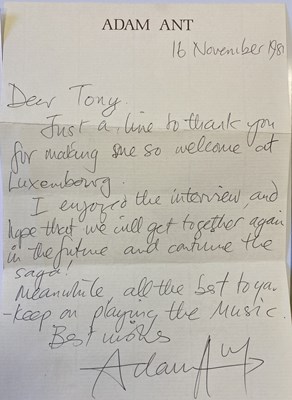 ADAM ANT
16 November 1981
Dear Tony.
Just a line to thank you
for making me so welcome at
Luxembourg.
I enjoyed the interview, and
hope that we will get together again
in the future and continue the
saga!
Meanwhile, all the best to you
- keep on playing the Music.
Best wishes
Adam Ant